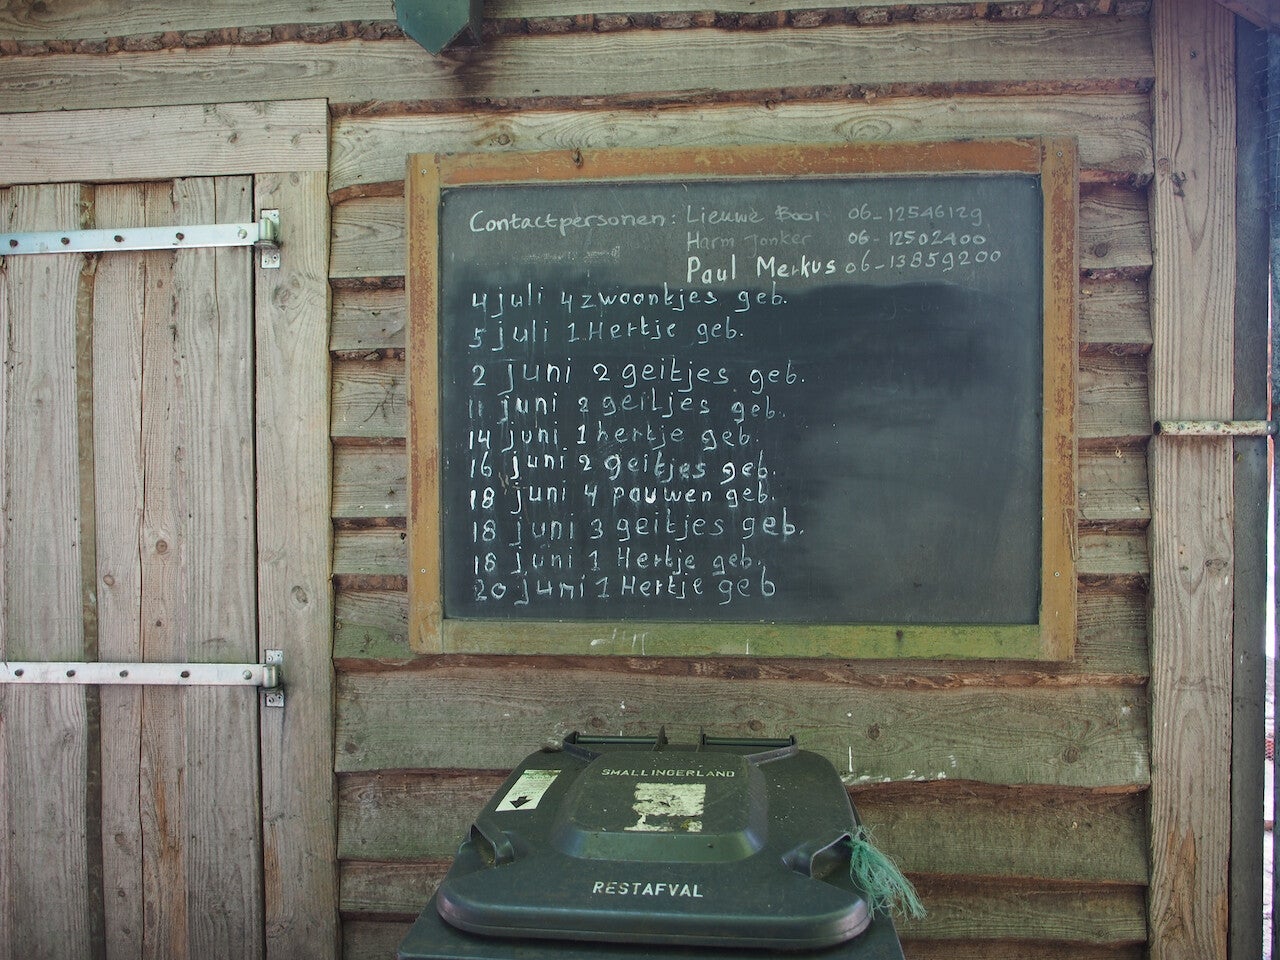 Contactpersonen: Lieuwe Booi 06-12546129
Harm Jonker 06-12502400
Paul Merkus 06-13859200
4 juli 4 zwaantjes geb.
5 juli 1 Hertje geb.
2 juni 2 geitjes geb.
11 juni 2 geitjes geb.
14 juni 1 hertje geb.
16 juni 2 geitjes geb.
18 juni 4 pauwen geb.
18 juni 3 geitjes geb.
18 juni 1 Hertje geb.
20 juni 1 Hertje geb
SMALLINGERLAND
RESTAFVAL